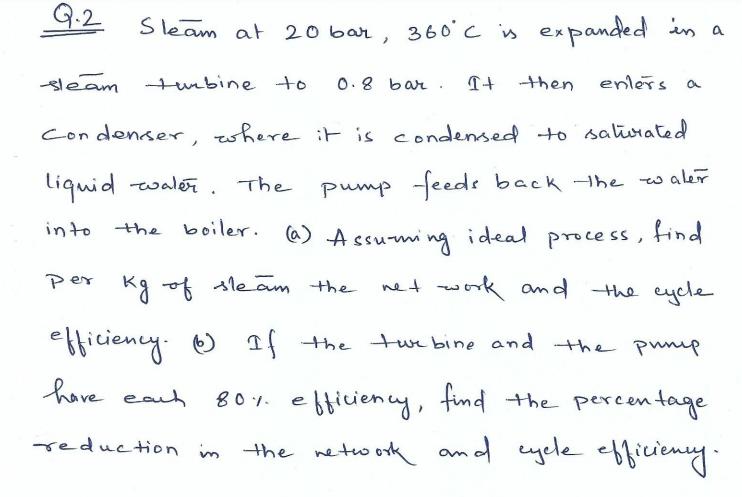 Q.2 Steam at 20 bar, 360°C is expanded in a
steam turbine to 0.8 bar. It then enters a
condenser, where it is condensed to saturated
liquid water. The pump feeds back the water
into the boiler. (a) Assuming ideal process, find
per kg of steam the net work and the cycle
efficiency. (b) If the turbine and the pump
have each 80% efficiency, find the percentage
reduction in the network and cycle efficiency.